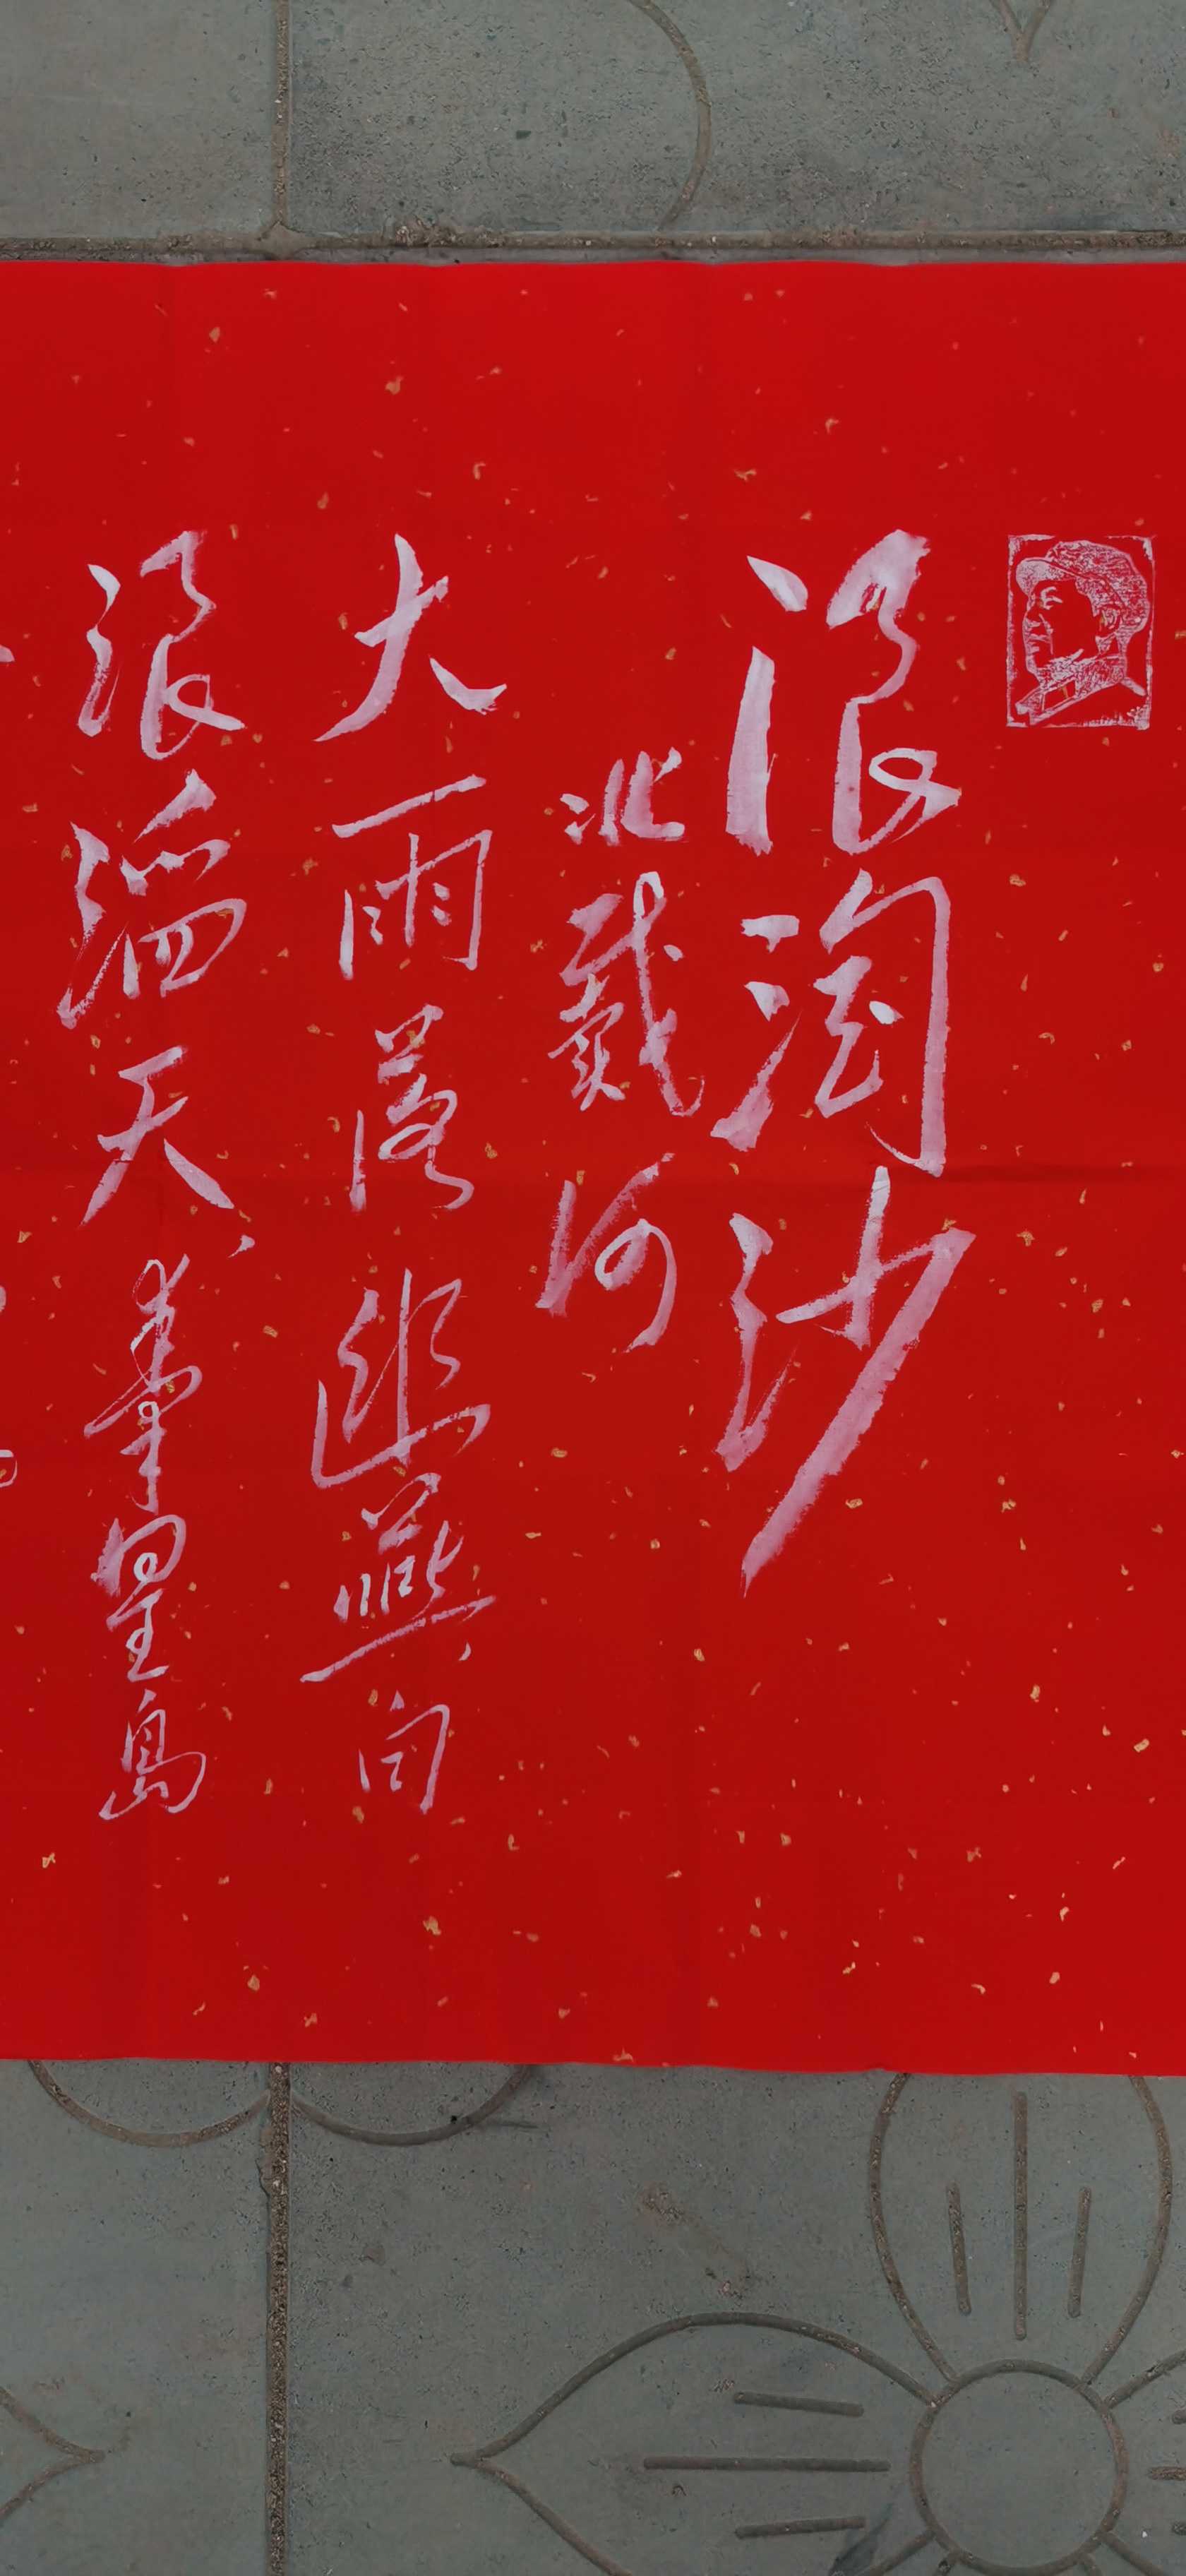 浪淘沙
北戴河
大雨落幽燕、白
浪滔天、秦皇島